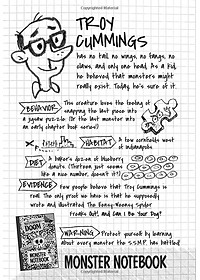 TROY
CUMMINGS
has no tail, no wings, no fangs, no
claws, and only one head. As a kid,
he believed that monsters might
really exist. Today, he's sure of it.
BEHAVIOR This creature loves the feeling of
snapping the last piece into
a jigsaw puzzle. (Or the last monster into
an early chapter book series!)
HABITAT A few cornfields west
of Indianapolis
DIET A baker's dozen of blueberry
donuts. (Thirteen just seems
like a nice number, doesn't it?)
EVIDENCE Few people believe that Troy Cummings is
real. The only proof we have is that he supposedly
wrote and illustrated The Eensy-Weensy Spider
Freaks Out! and Can I Be Your Dog?
WARNING Protect yourself by learning
about every monster the S.S.M.P. has battled
MONSTER NOTEBOOK